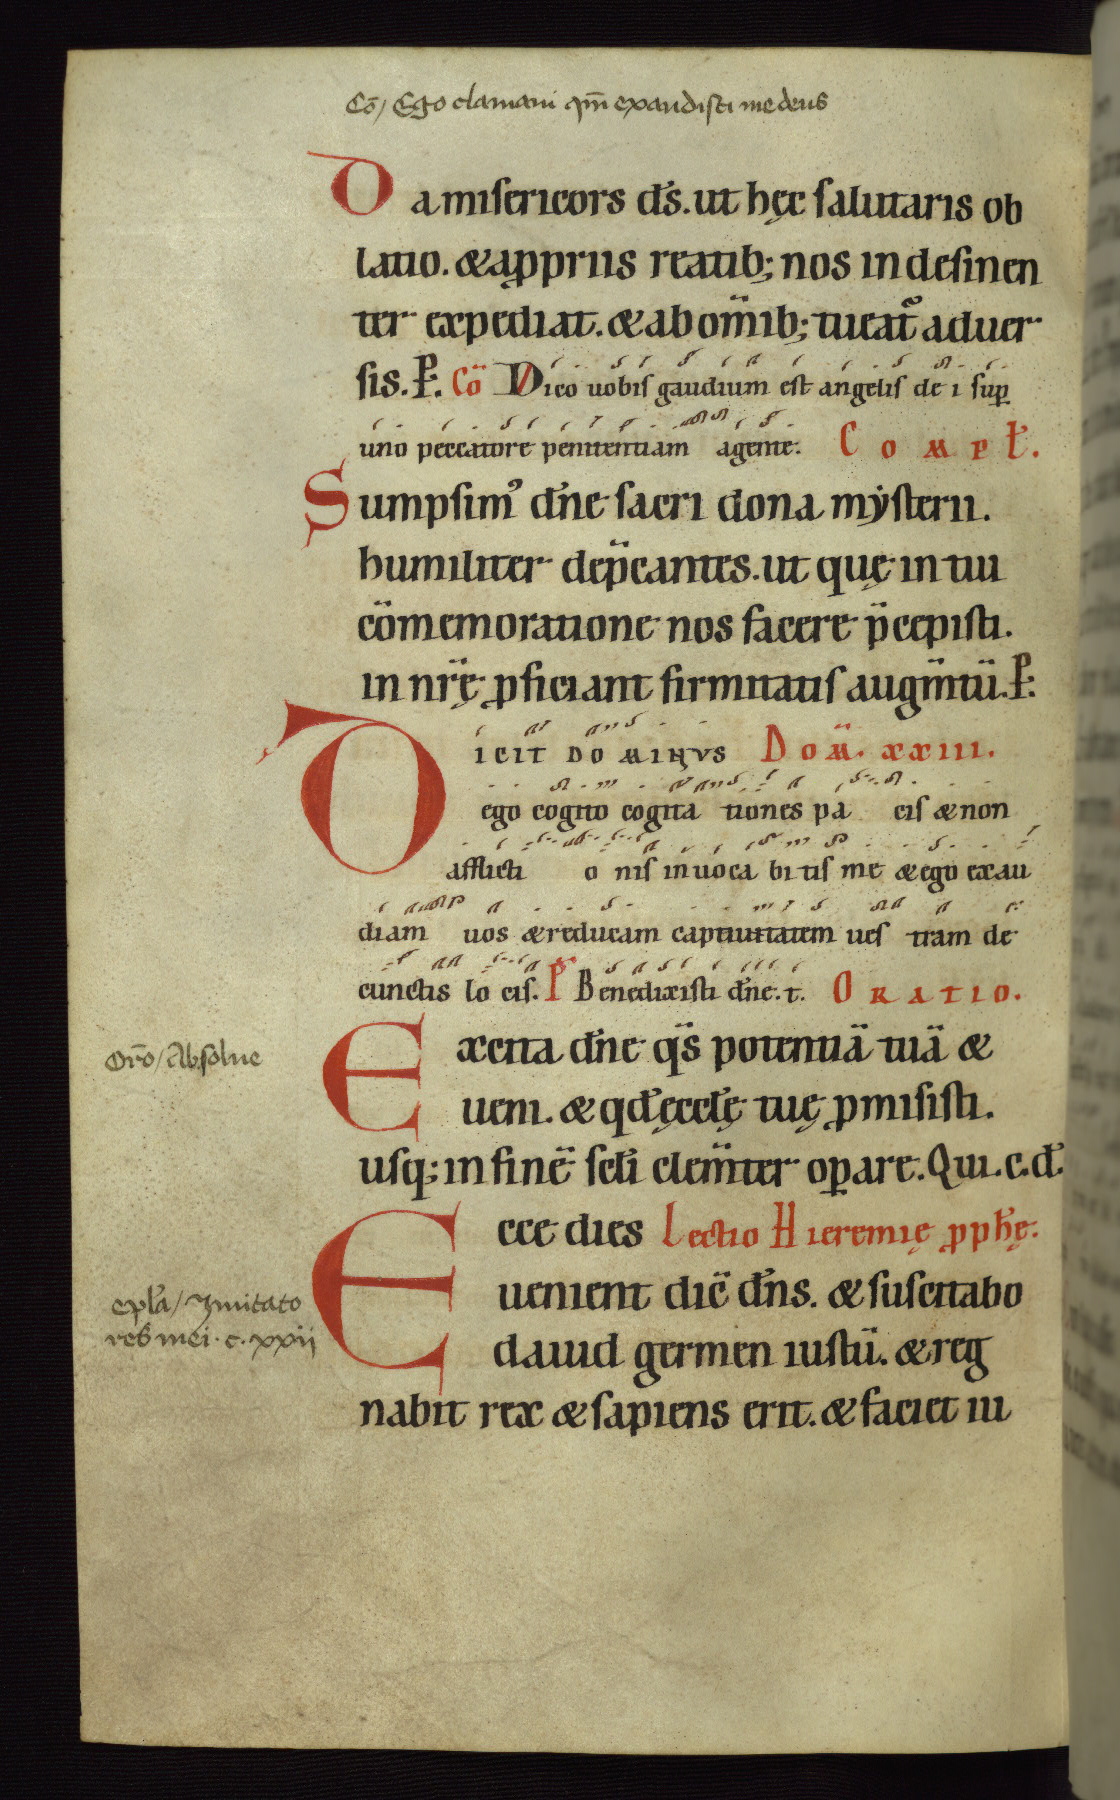 Cō/ Ego clamaui qm̄ exaudisti me deus
Da misericors d̄s. ut hęc salutaris ob
latio. & a propriis reatib; nos indesinen
ter expediat. & ab om̄ib; tueat᷑ aduer
sis. P. Cō Dico uobis gaudium est angelis dei sup
uno peccatore penitentiam agente. Compl̄.
Sumpsimꝰ dn̄e sacri dona mẏsterii.
humiliter dep̄cantes. ut quę in tui
cōmemoratione nos facere p̄cepisti.
in nr̄ę ꝓficiant firmitatis augm̄tū. P.
Dicit dominus Dom̄. xxiii.
ego cogito cogitationes pacis & non
afflictionis inuocabitis me & ego exau
diam uos & reducam captiuitatem uestram de
cunctis locis. P̄s Benedixisti dn̄e. t. Oratio.
Oro/ Absolue
Excita dn̄e qs̄ potentiā tuā &
ueni. & qd̄ ęccl̄ę tuę ꝓmisisti.
usq; in finē scl̄i clem̄ter oꝑare. Qui. c. d̄.
Ecce dies Lectio Hieremię ꝓph̄ę.
epl̄a/ Imitato
res mei. c. xxii
uenient dic̄ dn̄s. & suscitabo
dauid germen iustū. & reg
nabit rex & sapiens erit. & faciet iu